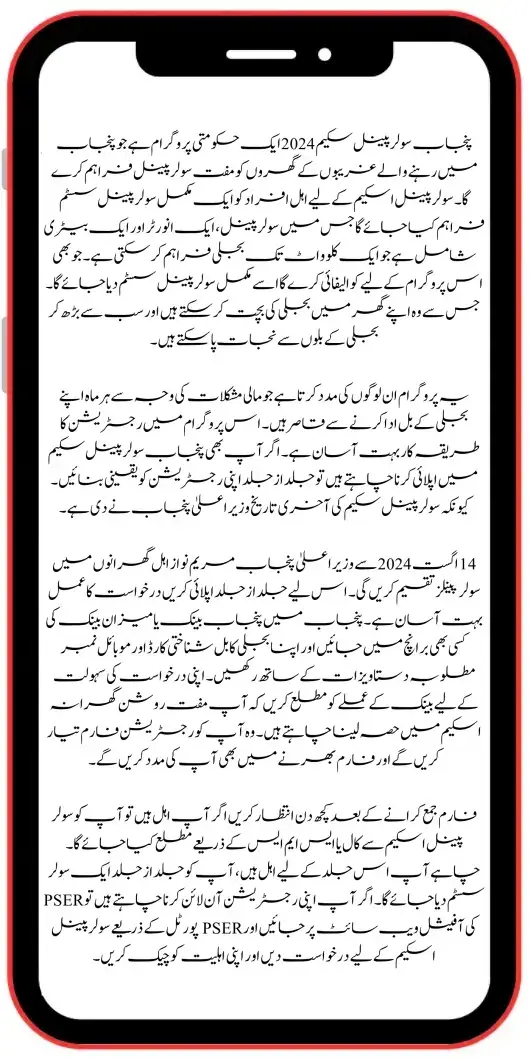 پنجاب سولر پینل سکیم 2024 ایک حکومتی پروگرام ہے جو پنجاب
میں رہنے والے غریبوں کے گھروں کو مفت سولر پینل فراہم کرے
گا۔ سولر پینل اسکیم کے لیے اہل افراد کو ایک مکمل سولر پینل سسٹم
فراہم کیا جائے گا جس میں سولر پینل، ایک انورٹر اور ایک بیٹری
شامل ہے جو ایک کلو واٹ تک بجلی فراہم کر سکتی ہے۔ جو بھی
اس پروگرام کے لیے کوالیفائی کرے گا اسے مکمل سولر پینل سسٹم دیا جائے گا۔
جس سے وہ اپنے گھر میں بجلی کی بچت کر سکتے ہیں اور سب سے بڑھ کر
بجلی کے بلوں سے نجات پا سکتے ہیں۔
یہ پروگرام ان لوگوں کی مدد کرتا ہے جو مالی مشکلات کی وجہ سے ہر ماہ اپنے
بجلی کے بل ادا کرنے سے قاصر ہیں۔ اس پروگرام میں رجسٹریشن کا
طریقہ کار بہت آسان ہے۔ اگر آپ بھی پنجاب سولر پینل سکیم
میں اپلائی کرنا چاہتے ہیں تو جلد از جلد اپنی رجسٹریشن کو یقینی بنائیں۔
کیونکہ سولر پینل سکیم کی آخری تاریخ وزیر اعلیٰ پنجاب نے دی ہے۔
14 اگست 2024 سے وزیر اعلیٰ پنجاب مریم نواز اہل گھرانوں میں
سولر پینلز تقسیم کریں گی۔ اس لیے جلد از جلد اپلائی کریں درخواست کا عمل
بہت آسان ہے۔ پنجاب میں پنجاب بینک یا میزان بینک کی
کسی بھی برانچ میں جائیں اور اپنا بجلی کا بل شناختی کارڈ اور موبائل نمبر
مطلوبہ دستاویزات کے ساتھ رکھیں۔ اپنی درخواست کی سہولت
کے لیے بینک کے عملے کو مطلع کریں کہ آپ مفت روشن گھرانہ
اسکیم میں حصہ لینا چاہتے ہیں۔ وہ آپ کو رجسٹریشن فارم تیار
کریں گے اور فارم بھرنے میں بھی آپ کی مدد کریں گے۔
فارم جمع کرانے کے بعد کچھ دن انتظار کریں اگر آپ اہل ہیں تو آپ کو سولر
پینل اسکیم سے کال یا ایس ایم ایس کے ذریعے مطلع کیا جائے گا۔
چاہے آپ اس جلد کے لیے اہل ہیں، آپ کو جلد از جلد ایک سولر
سسٹم دیا جائے گا۔ اگر آپ اپنی رجسٹریشن آن لائن کرنا چاہتے ہیں تو PSER
کی آفیشل ویب سائٹ پر جائیں اور PSER پورٹل کے ذریعے سولر پینل
اسکیم کے لیے درخواست دیں اور اپنی اہلیت کو چیک کریں۔